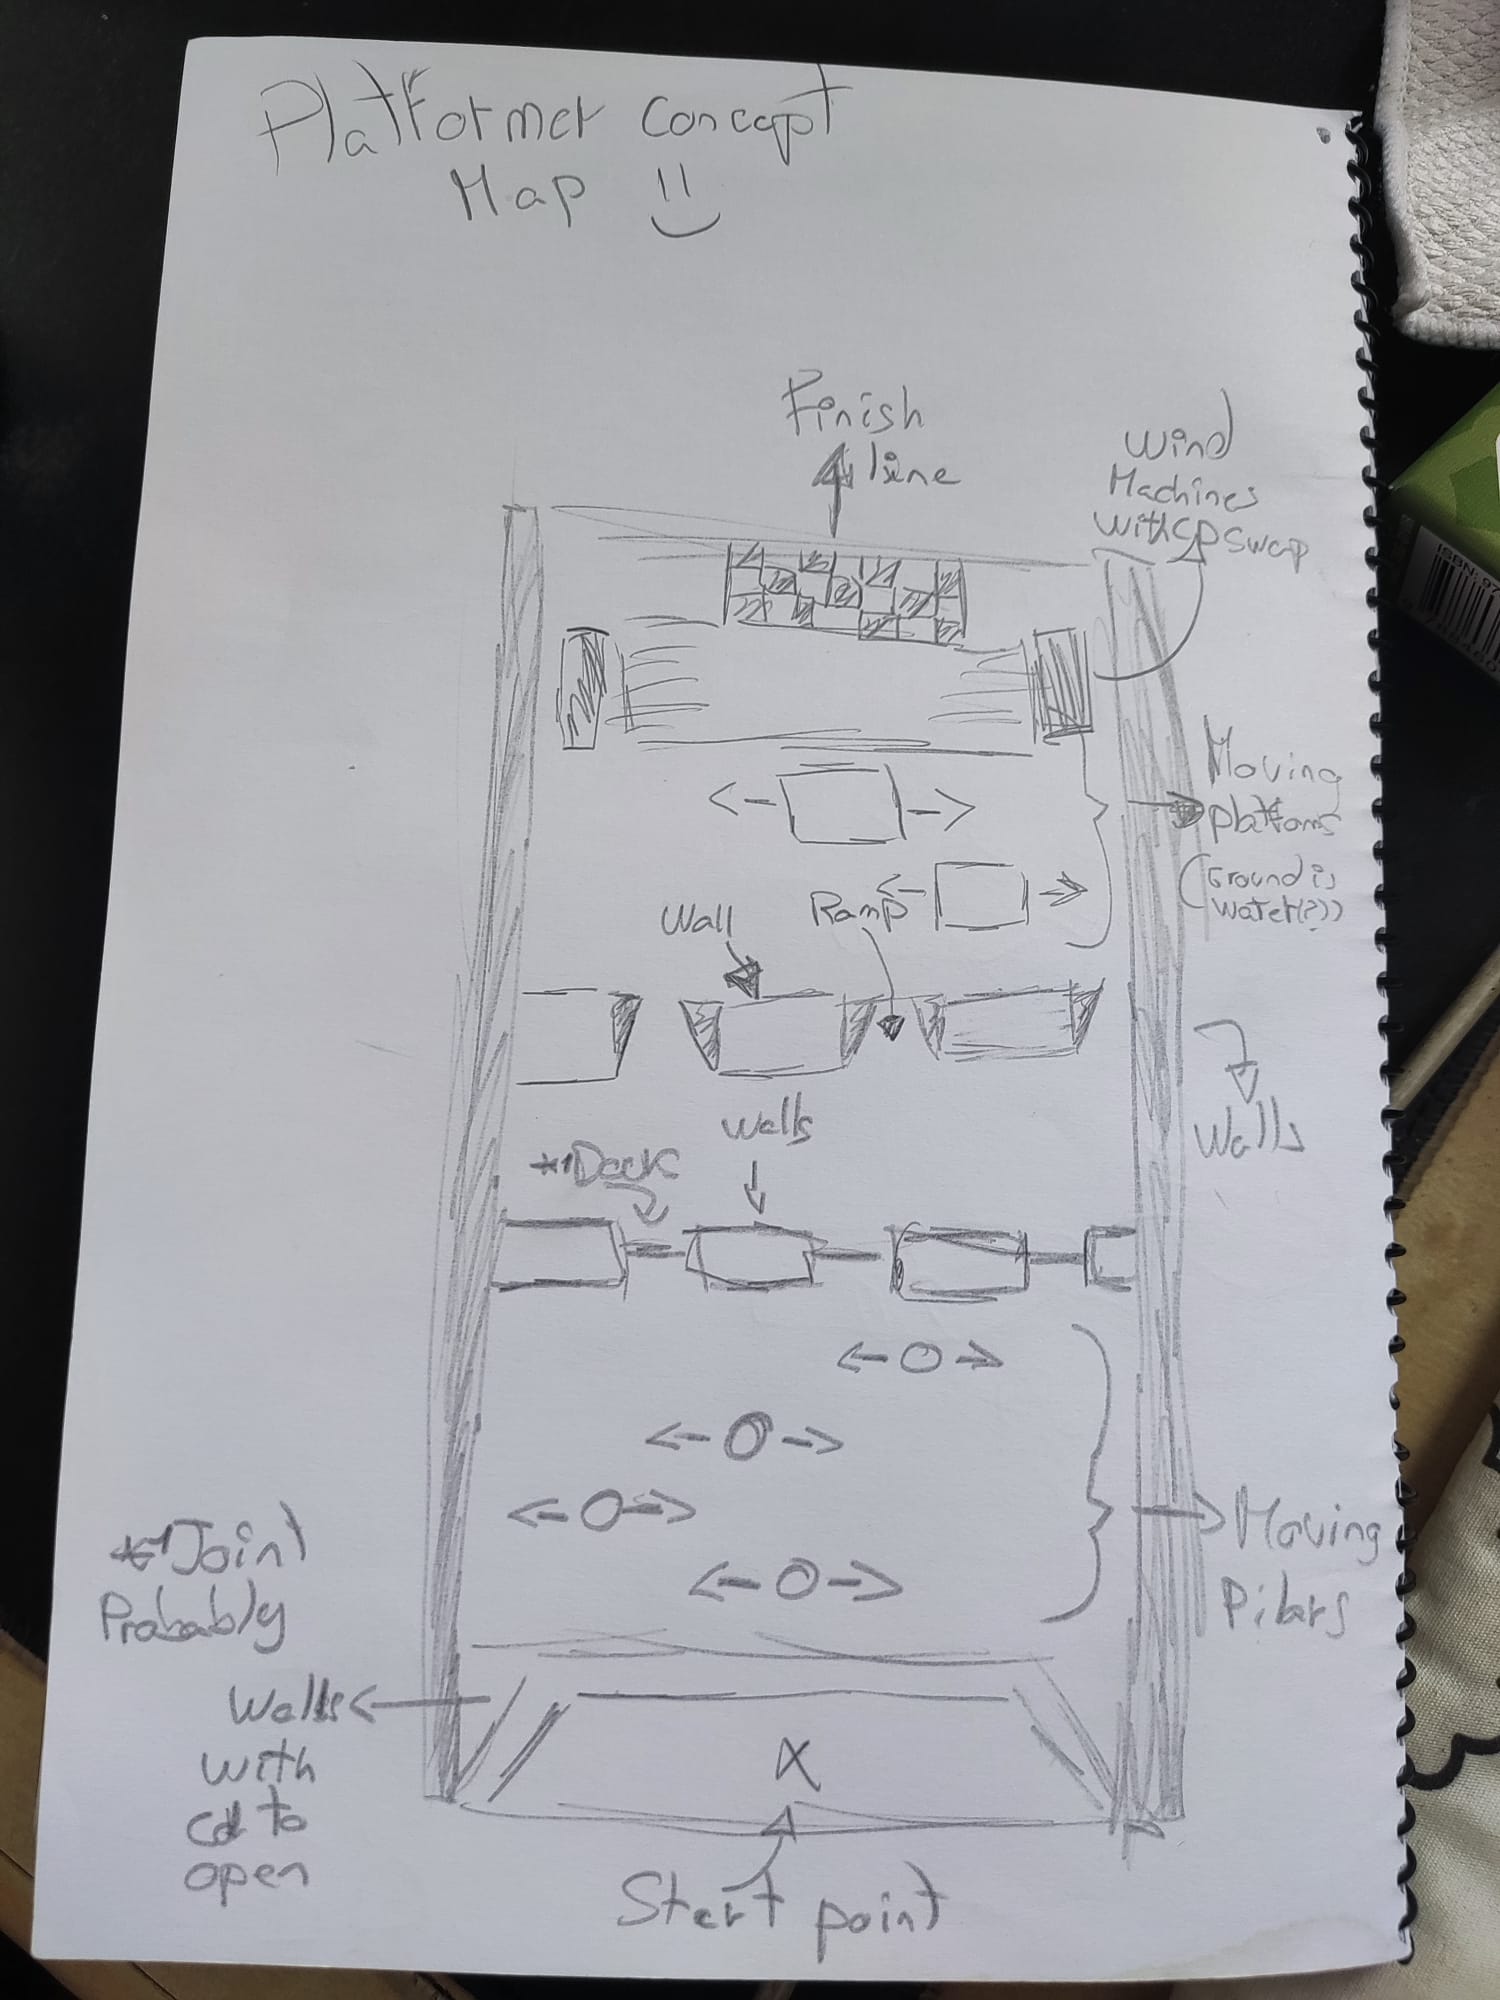 Platformer Concept
Map
Finish
line
Wind
Machines
with CD swap
Moving
platforms
(Ground is
water(?))
Wall
Ramp
Walls
Walls
*1 Doors
*1 Joint
Probably
Moving
Pilars
Walls
with
cd to
open
X
Start point
ISBN: 97